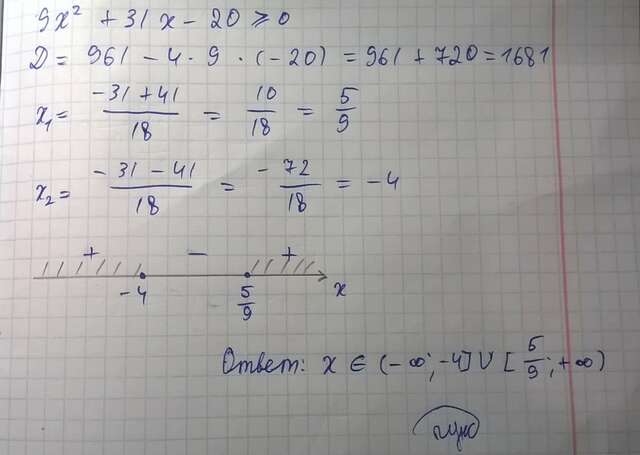 9x² + 31x - 20 ≥ 0
D = 961 - 4 · 9 · (-20) = 961 + 720 = 1681
x₁ = (-31 + 41)/18 = 10/18 = 5/9
x₂ = (-31 - 41)/18 = -72/18 = -4
+ - +
-4 5/9 x
Ответ: x ∈ (-∞; -4] ∪ [5/9; +∞)